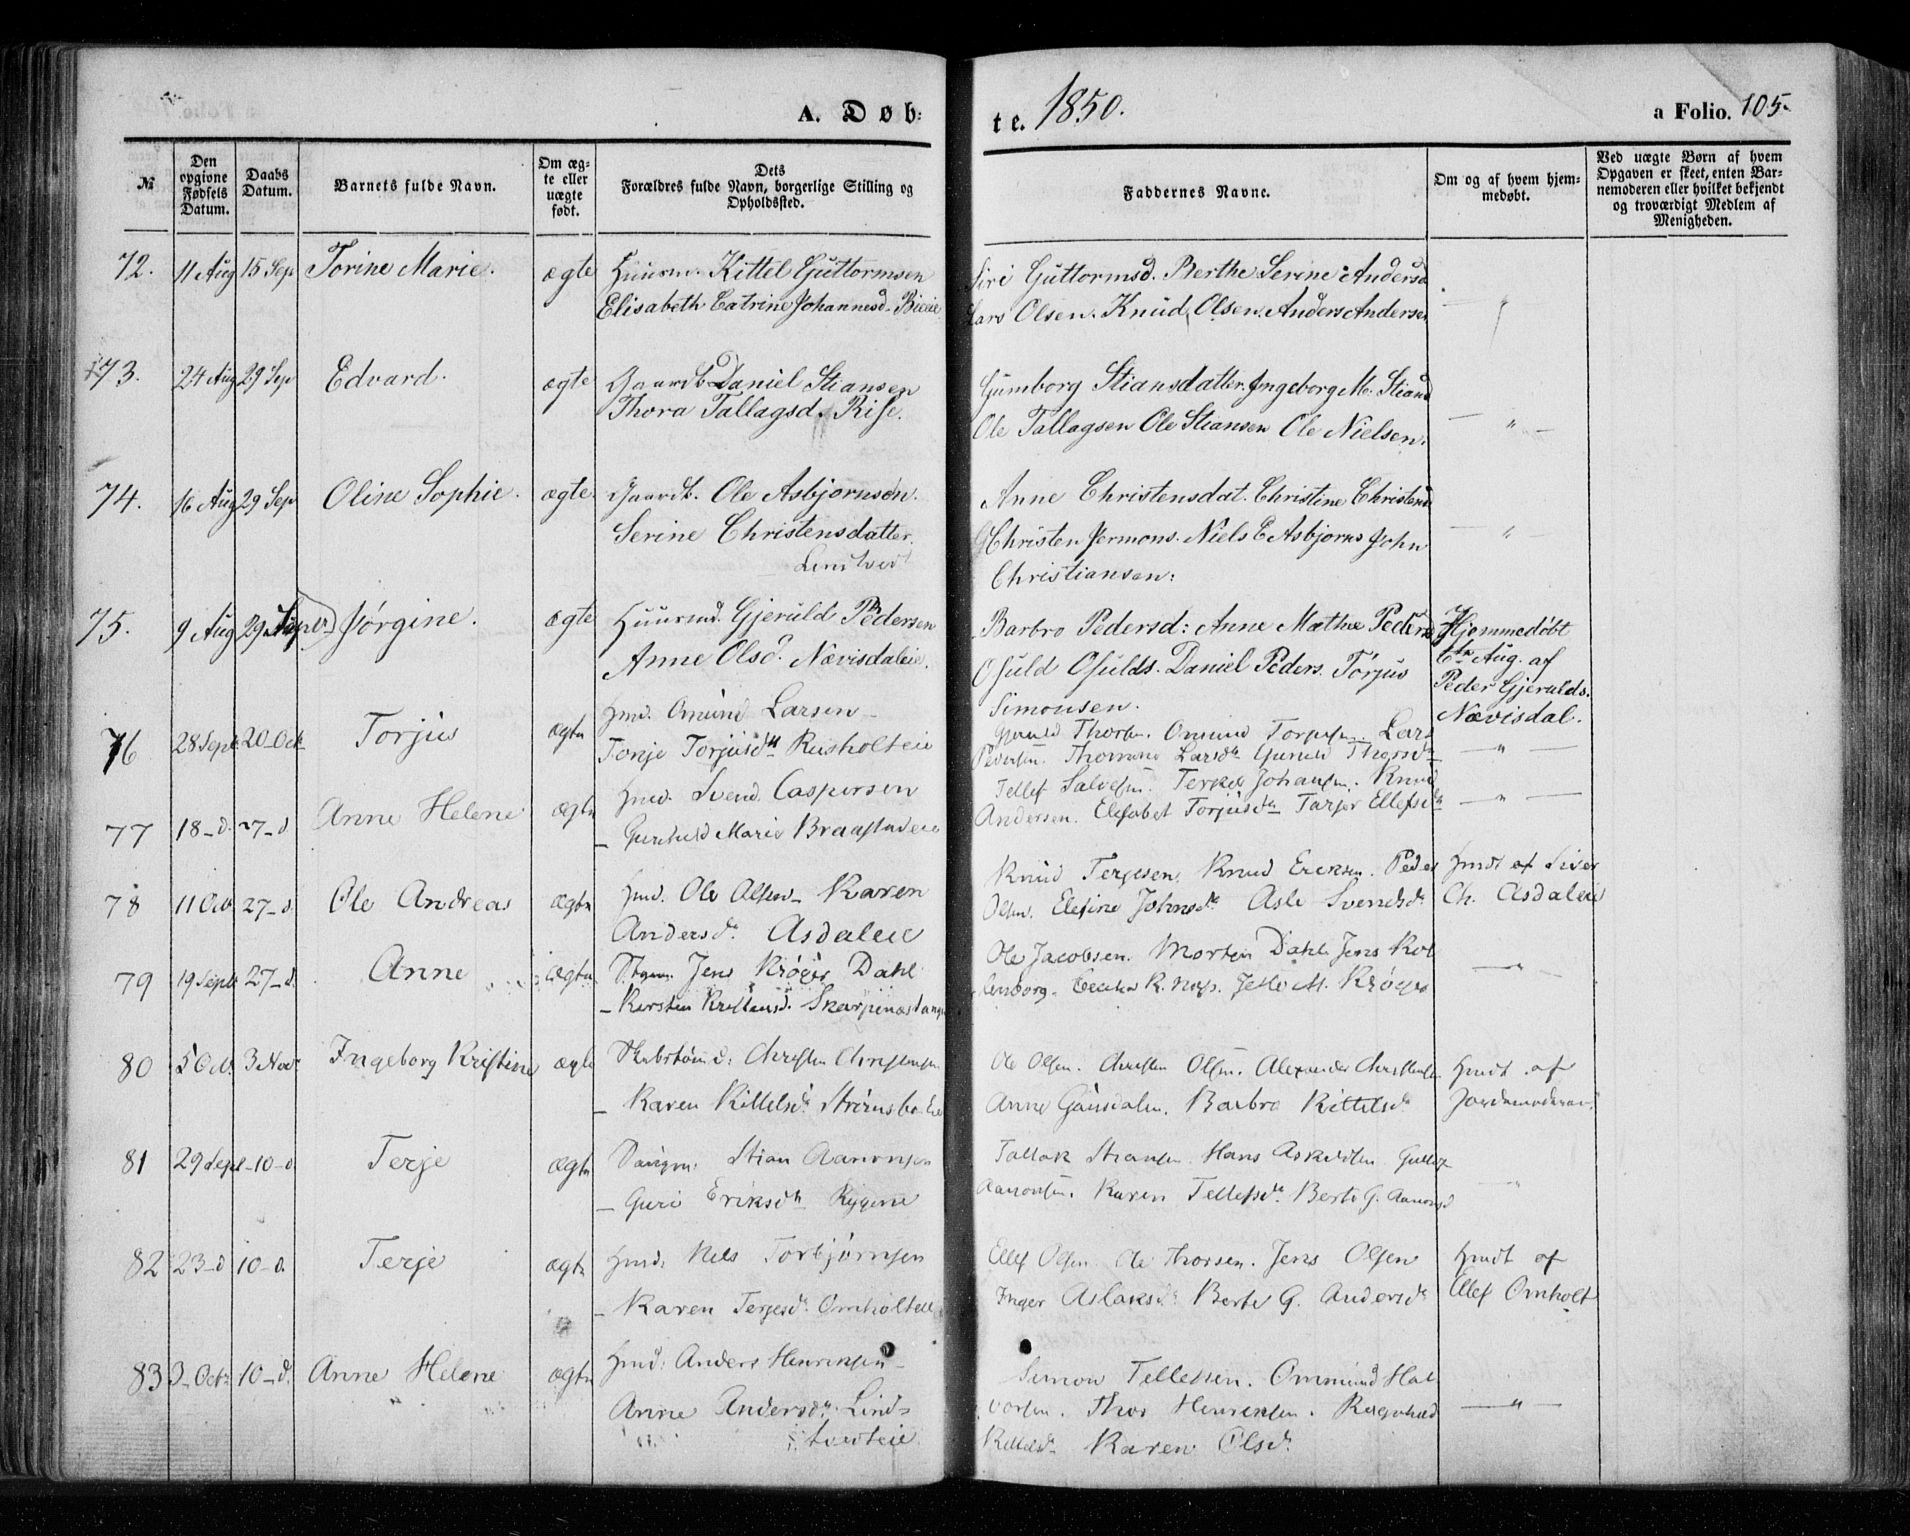 A. Døb:
te. 1850.
a Folio. 105.
№
Den opgivne Fødsels Datum.
Daabs Datum.
Barnets fulde Navn.
Om ægte eller uægte født.
Dets Forældres fulde Navn, borgerlige Stilling og Opholdssted.
Faddernes Navne.
Om og af hvem hjemmedøbt.
Ved uægte Børn af hvem Opgaven er skeet, enten Barnemoderen eller hvilket bekjendt og troværdigt Medlem af Menigheden.
72. 11 Aug 15 Sep Torine Marie. ægte Huusm. Kittel Guttormsen
Elisabeth Catrine Johannesd.
Siri Guttormsd. Berthe Serine Andersd
Lars Olsen. Knud Olsen. Anders Andersen
73. 24 Aug 29 Sep Edvard. ægte Gaardb. Daniel Stiansen
Thora Tallagsd. Rise.
Gumborg Stiansdatter. Ingeborg M. Stiansd
Ole Tallagsen Ole Stiansen Ole Nielsen.
74. 16 Aug 29 Sep Oline Sophie. ægte. Gaardb. Ole Asbjørnsen.
Serine Christensdatter.
Lindtved
Anne Christensdat. Christine Christensd
Christen Jermons. Niels E Asbjørns John
Christiansen:
75. 9 Aug 29 Jørgine. ægte Huusmd. Gjeruld Pedersen
Anne Olsd. Nævisdaleie.
Barbro Pedersd: Anne Mathea Pedersd
Osuld Osulds. Daniel Peders. Torjus
Simonsen.
Hjemmedøbt
Aug. af
Peder Gjerulds.
Nævisdal.
76 28 Sept 20 Oct Torjus ægte Hmd. Omund Larsen
Tonje Torjusd Rusholteie
Gjeruld Thors. Omund Lars
Pedersen. Larsd. Gunild Thorsd
77 18 d. 27 d Anne Helene ægte Hmd. Svend Caspersen
Gunhild Marie Braastadeie
Tellef Salvesen. Terkel Johansen. Knud
Andersen. Elisabet Torjusd. Tarjer Ellefsd
78 11 Oct 27 d. Ole Andreas ægte Hmd. Ole Olsen Karen
Andersd. Asdaleie
Knud Terjesen. Knud Eriksen. Peder
Olsen. Elesine Johnsd. Asle Svendsd.
Hmdt af Siver
Ch. Asdaleie
79 19 Sept 27 d. Anne ægte Jens Krøger Dahl
Kirsten Kristensd. Skarpenæstangen
Ole Jacobsen. Morten Dahl. Jens Kol
M. Krøger
80 5 Oct. 3 Nov Ingeborg Kristine ægte Christen Christensen
Karen Kittelsd. Strømsbo
Ole Olsen. Christen Olsen. Alexander Christensen
Anne Barbro Kittelsd
Hmdt af
Jordemoderen
81 29 Sept 10 d Terje ægte Stian Aanonsen
Guri Eriksd. Rygene
Tallak Stiansen. Hans
Aanonsen. Karen Tellefsd. Berte G. Aanonsd
82 23 d 10 d. Terje ægte Hmd. Nels Torbjørnsen
Karen Terjesd. Omholteie
Ellef Olsen Ole Thorsen. Jens Olsen
Inger Aslaksd. Berte G. Andersd.
Hmdt af
Ellef Omholt
83 3 Oct. 10 d. Anne Helene ægte Hmd. Anders Henriksen
Anne Andersd. Lind-
tvedteie
Simon Tellefsen. Ommund Hal
vorsen. Thor Henriksen. Ragnhild
Kittelsd. Karen Olsd.